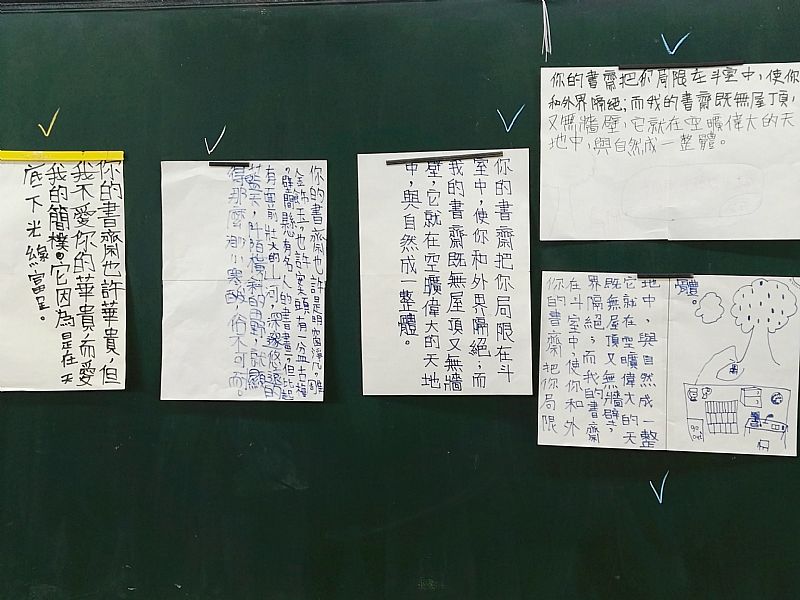 你的書齋也許華貴，但
我不愛你的華貴，而愛
我的簡樸。它因為是在天
底下光線富足。
你的書齋也許是明窗淨几。雕
金飾玉。也許案頭有一盆
，壁間懸有名人的書畫，但比起
有面前壯大的山河，深邃悠遠的
藍天，阡陌橫斜的田野，就顯
得那麼渺小寒酸，俗不可耐。
你的書齋把你局限在斗
室中，使你和外界隔絕；而
我的書齋既無屋頂又無牆
壁，它就在空曠偉大的天地
中，與自然成一整體。
你的書齋把你局限在斗室中，使你
和外界隔絕；而我的書齋既無屋頂，
又無牆壁，它就在空曠偉大的天
地中，與自然成一整體。
你的書齋把你局限
在斗室中，使你和外
界隔絕；而我的書齋
既無屋頂又無牆壁，
它就在空曠偉大的天
地中，與自然成一整
體。